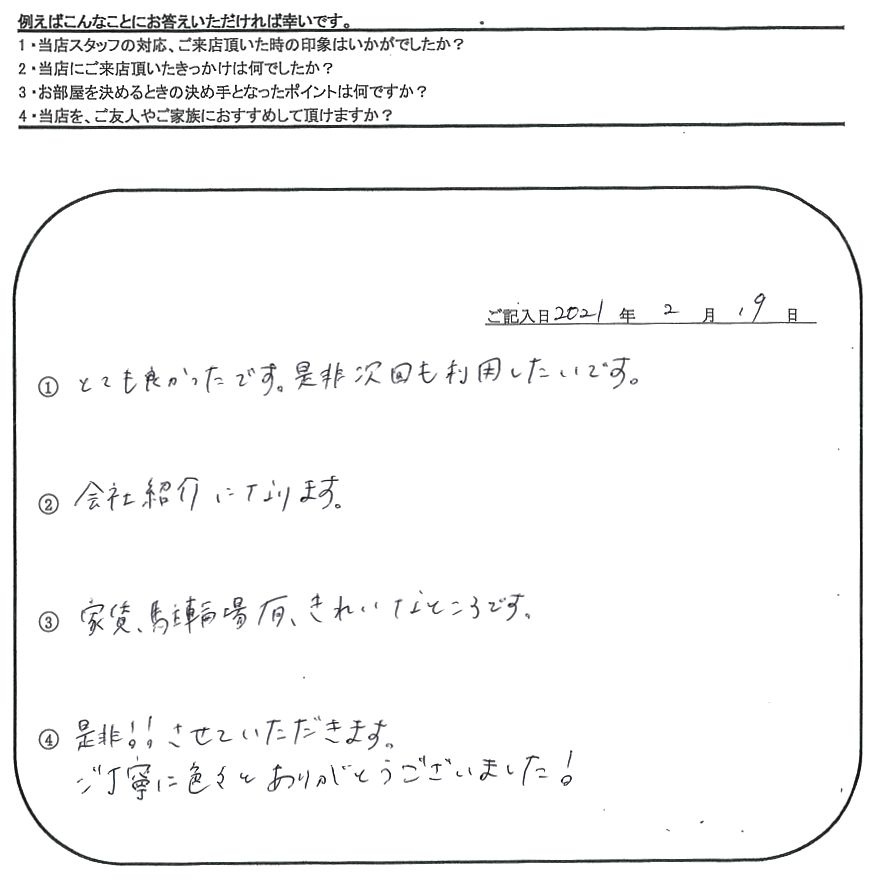 例えばこんなことにお答えいただければ幸いです。
1・当店スタッフの対応、ご来店頂いた時の印象はいかがでしたか？
2・当店にご来店頂いたきっかけは何でしたか？
3・お部屋を決めるときの決め手となったポイントは何ですか？
4・当店を、ご友人やご家族におすすめして頂けますか？
ご記入日2021年 2 月 19 日
① とても良かったです。是非次回も利用したいです。
② 会社紹介になります。
③ 家賃、駐輪場有、きれいなところです。
④ 是非!!させていただきます。
ご丁寧に色々とありがとうございました!